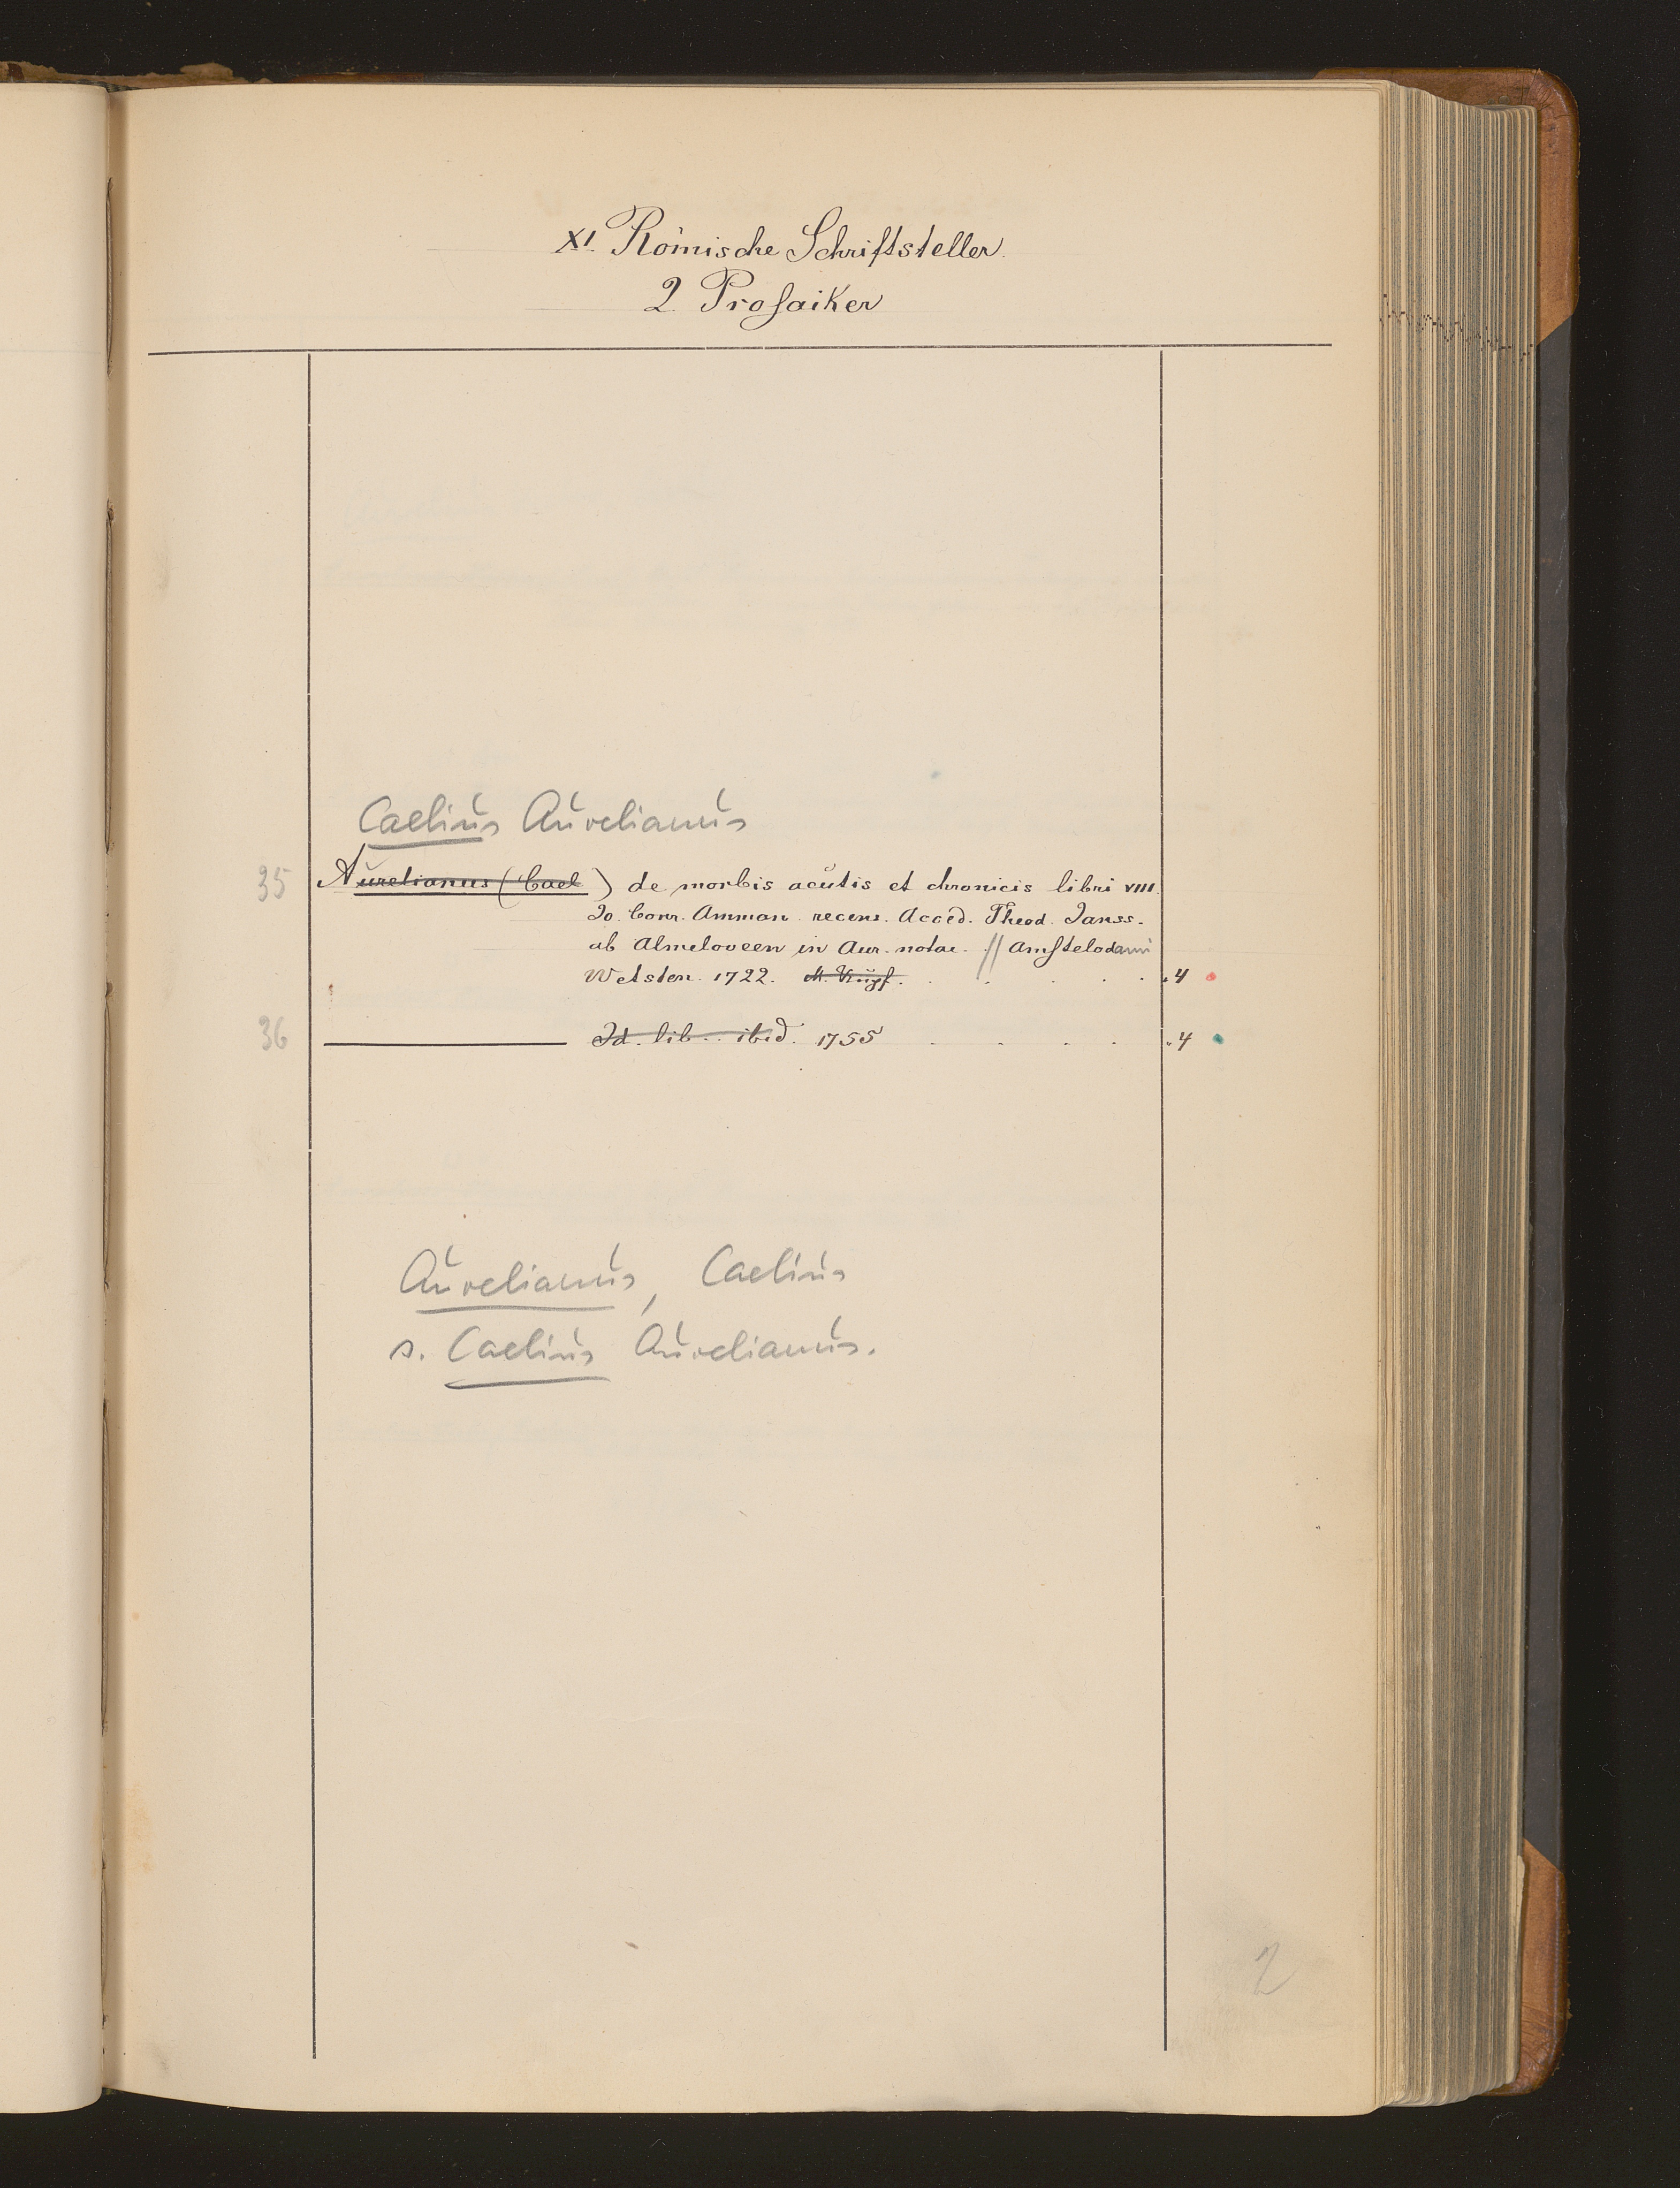 XI. Römische Schriftsteller.
2. Prosaiker
Caelius Aurelianus
35 Aurelianus (Cael.) de morbis acutis et chronicis libri VIII.
Io. Conr. Amman recens. Acced. Theod. Janss.
ab Almeloveen in Aur. notae. // Amstelodami
Wetsten. 1722. . . . . . 4
36 ——— Id. lib. ibid. 1755 . . . . . 4
Aurelianus, Caelius
s. Caelius Aurelianus.
2